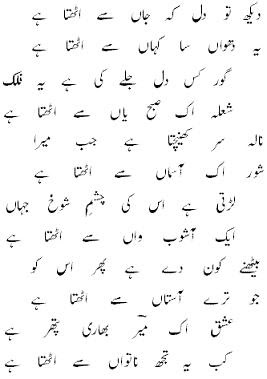 دیکھ تو دل کہ جاں سے اٹھتا ہے
یہ دھواں سا کہاں سے اٹھتا ہے
گور کس دل جلے کی ہے یہ فلک
شعلہ اک صبح یاں سے اٹھتا ہے
نالہ سر کھینچتا ہے جب میرا
شور اک آسماں سے اٹھتا ہے
لڑتی ہے اس کی چشمِ شوخ جہاں
ایک آشوب واں سے اٹھتا ہے
بیٹھنے کون دے ہے پھر اس کو
جو ترے آستاں سے اٹھتا ہے
عشق اک میرؔ بھاری پتھر ہے
کب یہ تجھ ناتواں سے اٹھتا ہے